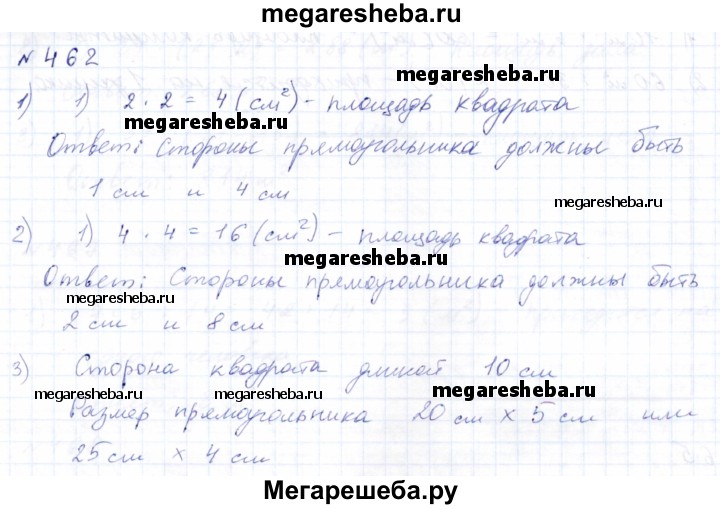 megaresheba.ru
№ 462
megaresheba.ru
1) 1) 2 · 2 = 4 (см²) - площадь квадрата
megaresheba.ru
Ответ: Стороны прямоугольника должны быть
1 см и 4 см
megaresheba.ru
2) 1) 4 · 4 = 16 (см²) - площадь квадрата
megaresheba.ru
Ответ: Стороны прямоугольника должны быть
megaresheba.ru
2 см и 8 см
3) Сторона квадрата длиной 10 см
megaresheba.ru megaresheba.ru megaresheba.ru
Размер прямоугольника 20 см х 5 см или
25 см х 4 см
Мегарешеба.ру